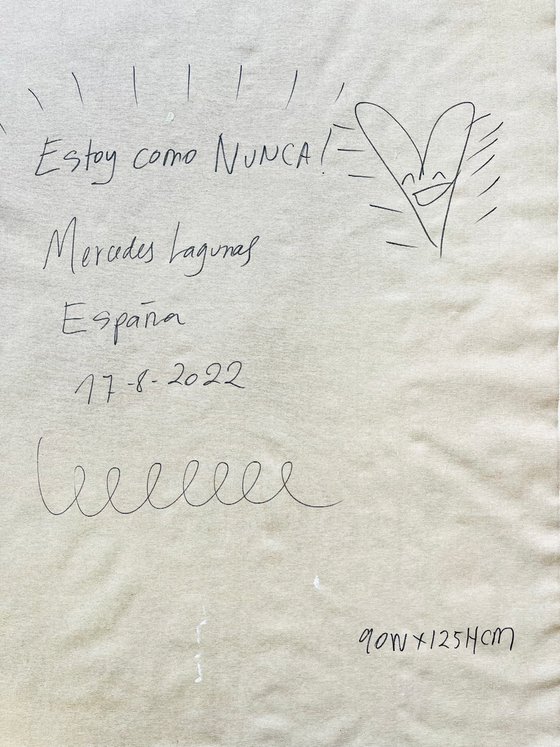 Estoy como NUNCA!
Mercedes Lagunas
España
17-8-2022
90W X 125H CM